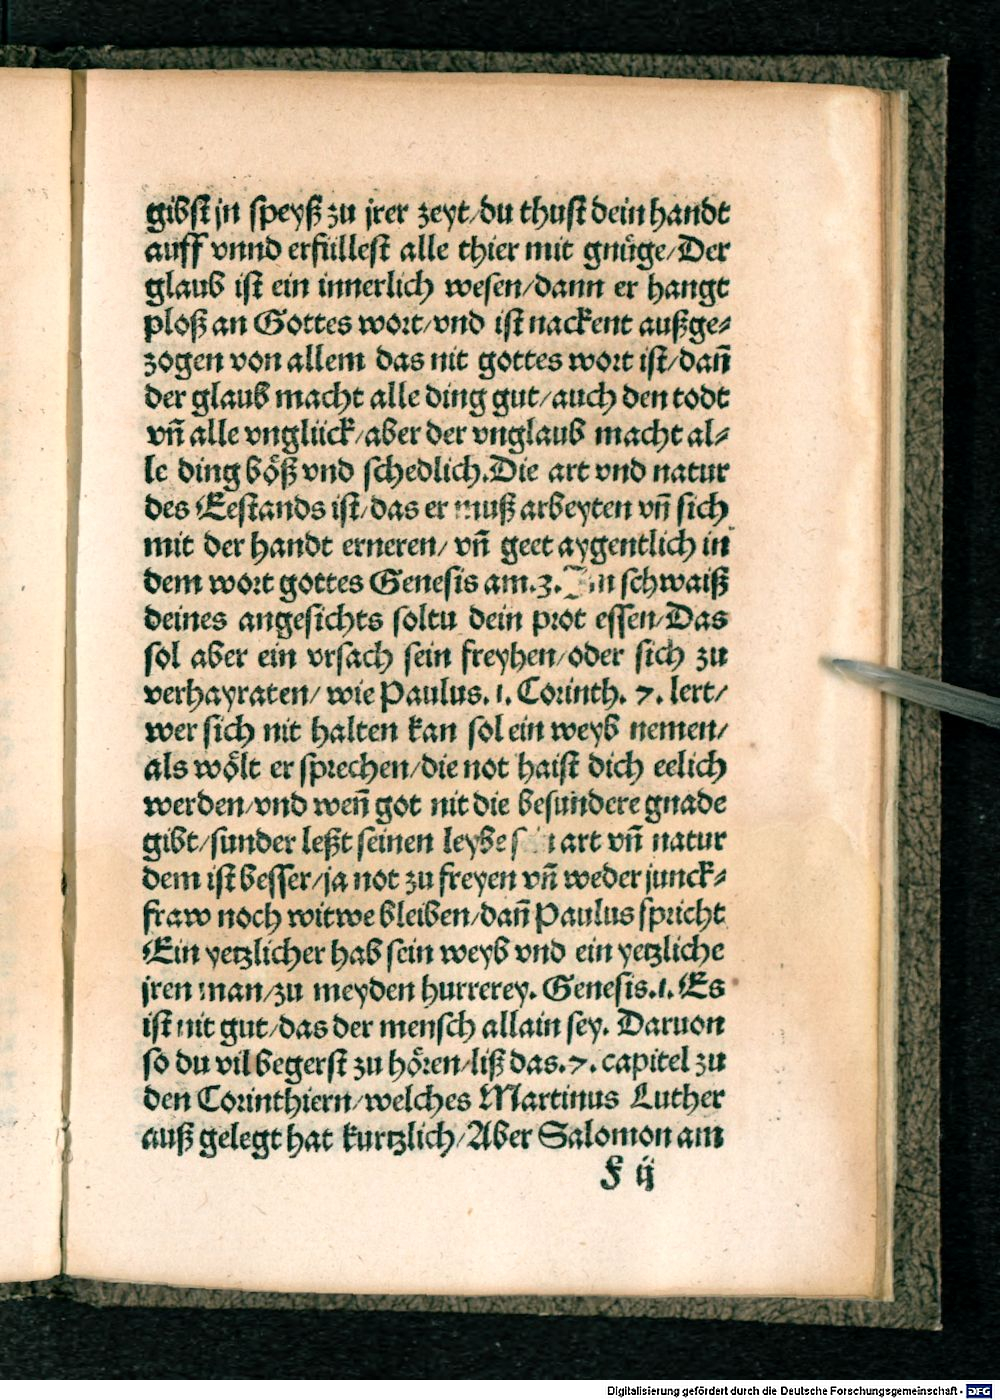 gibst jn speyß zu jrer zeyt/du thust dein handt
auff vnnd erfüllest alle thier mit gnüge/Der
glaub ist ein innerlich wesen/dann er hangt
ploß an Gottes wort/vnd ist nackent außge-
zogen von allem das nit gottes wort ist/dañ
der glaub macht alle ding gut/auch den todt
vñ alle vnglück/aber der vnglaub macht al-
le ding böß vnd schedlich.Die art vnd natur
des Eestands ist/das er muß arbeyten vñ sich
mit der handt erneren/ vñ geet aygentlich in
dem wort gottes Genesis am.3. Im schwaiß
deines angesichts soltu dein prot essen/Das
sol aber ein vrsach sein freyhen/oder sich zu
verhayraten/ wie Paulus. 1. Corinth. 7. lert/
wer sich nit halten kan sol ein weyb nemen/
als wölt er sprechen/die not haist dich eelich
werden/vnd weñ got nit die besundere gnade
gibt/sunder leßt seinen leybe sein art vñ natur
dem ist besser/ja not zu freyen vñ weder junck-
fraw noch witwe bleiben/dañ Paulus spricht
Ein yetzlicher hab sein weyb vnd ein yetzliche
jren man/zu meyden hurrerey. Genesis.1. Es
ist nit gut/das der mensch allain sey. Daruon
so du vil begerst zu hören/liß das.7. capitel zu
den Corinthiern/welches Martinus Luther
auß gelegt hat kurtzlich/Aber Salomon am
F ij
Digitalisierung gefördert durch die Deutsche Forschungsgemeinschaft - DFG